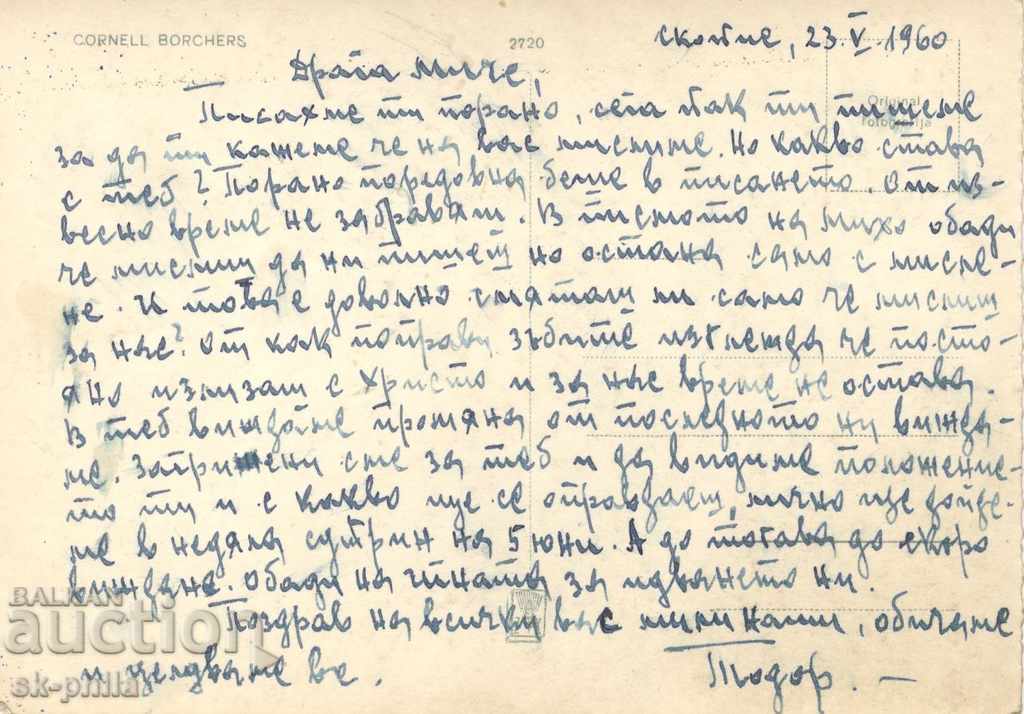 CORNELL BORCHERS
2720
Скопие, 23.V.1960
Драга Миче,
Original
Fotografija
Писахме ти порано, сега пак ти пишеме
за да ти кажеме че на вас мислиме. Но какво става
с теб? Порано поредовна беше в писането. От из-
весно време не забравяш. В писмото на Михо обади
че мислиш да ни пишеш но остана само с мисле-
не. И това е доволно смяташ ли само че мислиш
за нас? От как поправи зъбите изглежда че посто-
яно излизаш с Христо и за нас време не остава.
В теб виждаме промяна от последното ни вижда-
не. Загрижени сме за теб и да видиме положение-
то ти и с какво ще се оправдаеш, лично ще дойде-
ме в неделя сутрин на 5 юни. А до тогава до скоро
виждане. Обади на чичата за идването ни.
Поздрав на всички вас мили наши, обичаме
и целуваме ве.
Тодор. —
BALKAN
auction
sk-philla